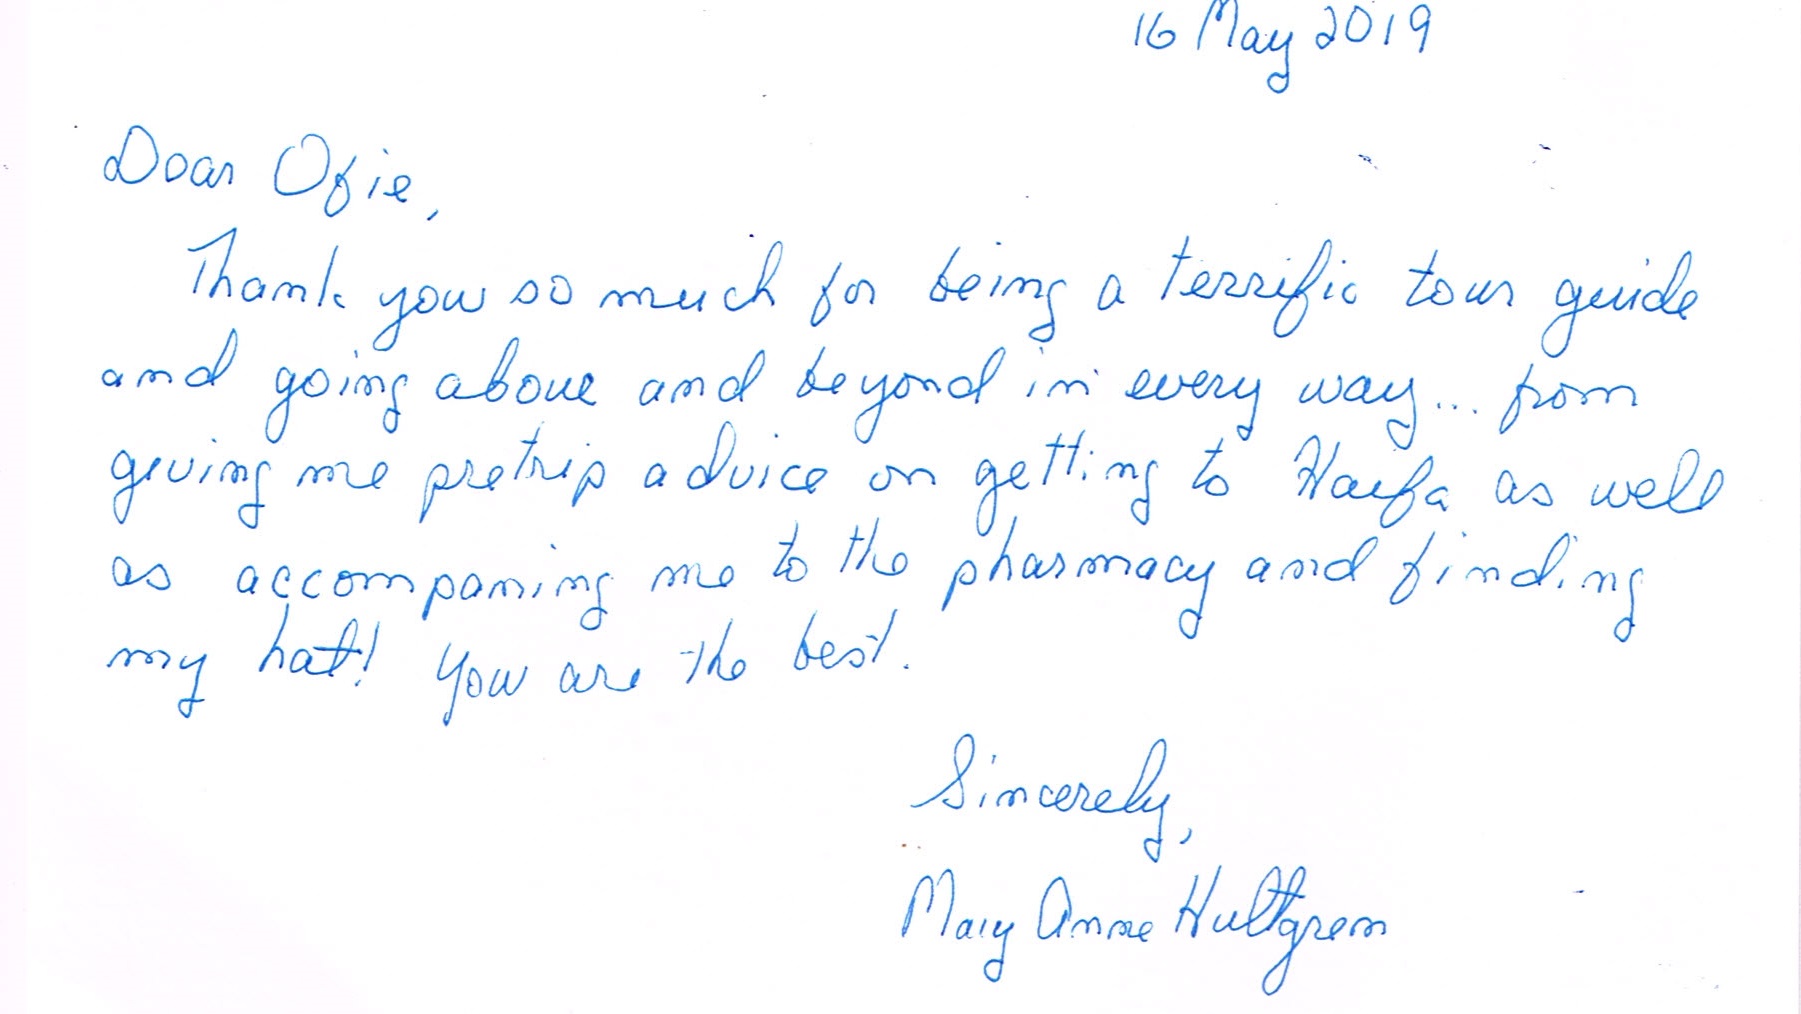 16 May 2019
Dear Ofie,
Thank you so much for being a terrific tour guide
and going above and beyond in every way... from
giving me pretrip advice on getting to Haifa as well
as accompaning me to the pharmacy and finding
my hat! You are the best.
Sincerely,
Mary Anne Hultgren